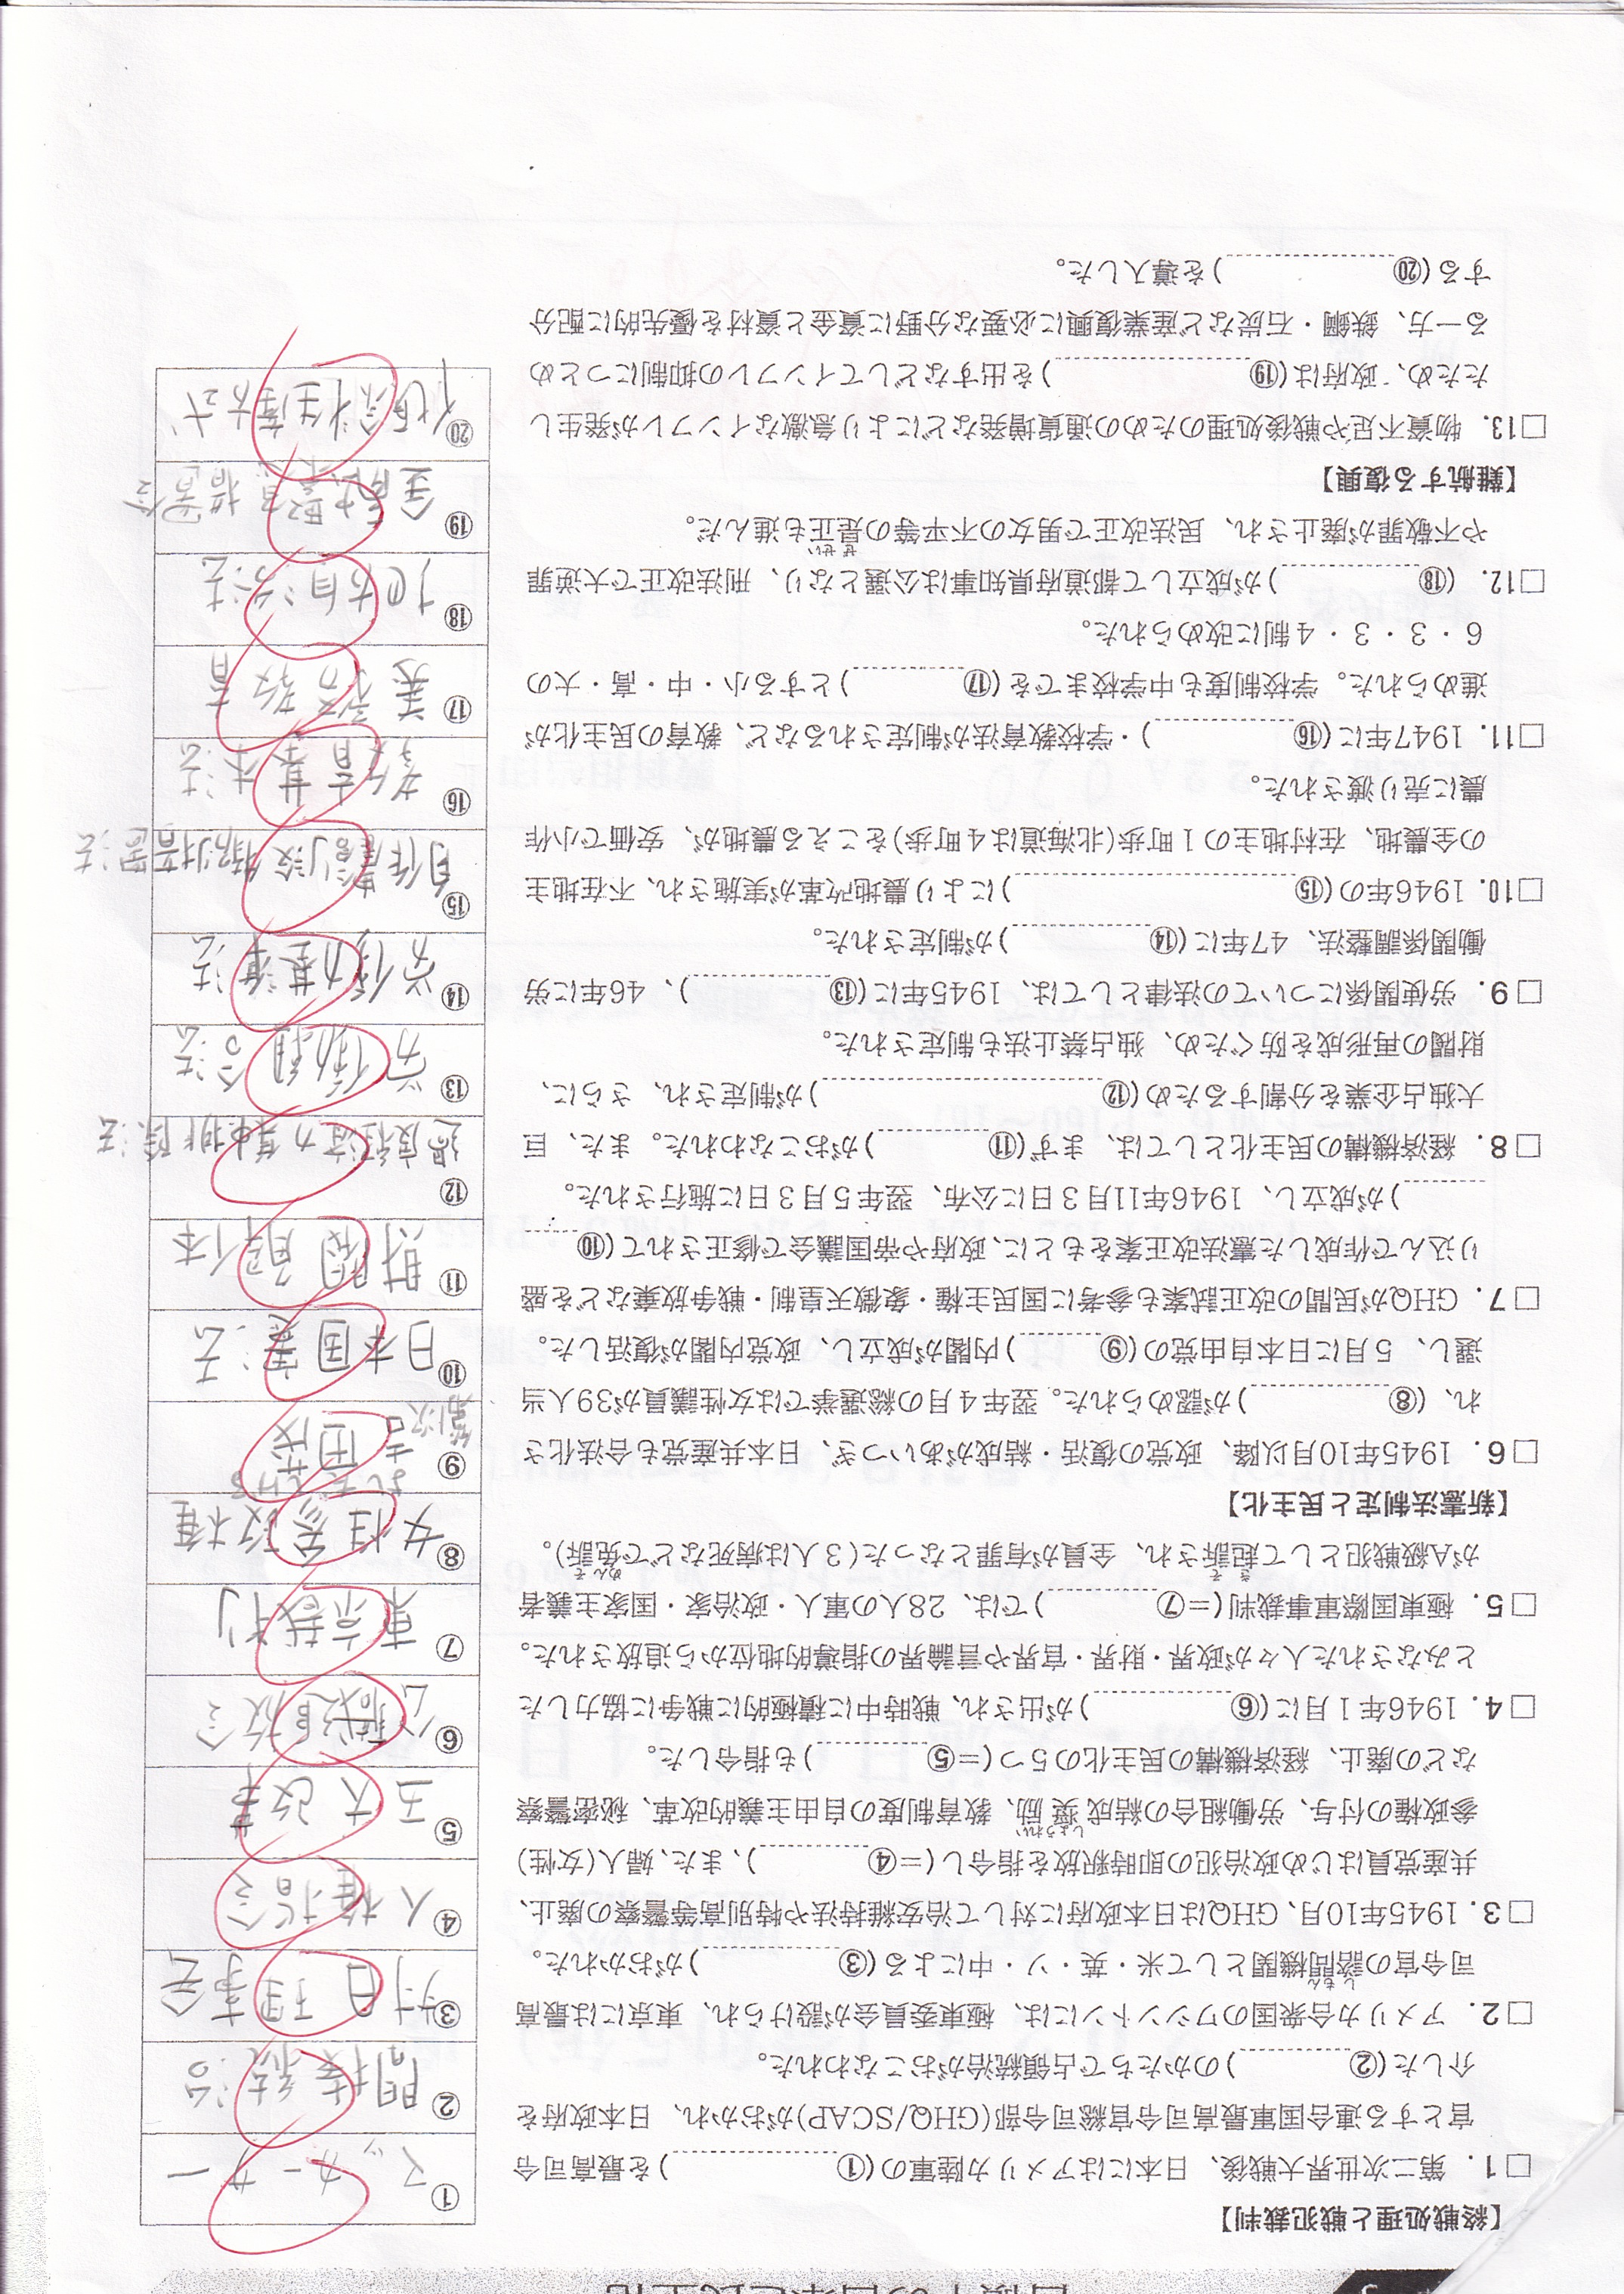 【終戦処理と戦犯裁判】
□1．第二次世界大戦後、日本にはアメリカ陸軍の(① )を最高司令
官とする連合国軍最高司令官総司令部(GHQ/SCAP)がおかれ、日本政府を
介した(② )のかたちで占領統治がおこなわれた。
□2．アメリカ合衆国のワシントンには、極東委員会が設けられ、東京には最高
司令官の諮問機関として米・英・ソ・中による(③ )がおかれた。
しもん
□3．1945年10月、GHQは日本政府に対して治安維持法や特別高等警察の廃止、
共産党員はじめ政治犯の即時釈放を指令し(＝④ )、また、婦人(女性)
参政権の付与、労働組合の結成奨励、教育制度の自由主義的改革、秘密警察
しょうれい
などの廃止、経済機構の民主化の5つ(＝⑤ )も指令した。
□4．1946年1月に(⑥ )が出され、戦時中に積極的に戦争に協力した
とみなされた人々が政界・財界・官界や言論界の指導的地位から追放された。
□5．極東国際軍事裁判(＝⑦ )では、28人の軍人・政治家・国家主義者
がA級戦犯として起訴され、全員が有罪となった(3人は病死などで免訴)。
きそ
めんそ
【新憲法制定と民主化】
□6．1945年10月以降、政党の復活・結成があいつぎ、日本共産党も合法化さ
れ、(⑧ )が認められた。翌年4月の総選挙では女性議員が39人当
選し、5月に日本自由党の(⑨ )内閣が成立し、政党内閣が復活した。
□7．GHQが民間の改正試案も参考に国民主権・象徴天皇制・戦争放棄などを盛
り込んで作成した憲法改正案をもとに、政府や帝国議会で修正されて(⑩
)が成立し、1946年11月3日に公布、翌年5月3日に施行された。
□8．経済機構の民主化としては、まず(⑪ )がおこなわれた。また、巨
大独占企業を分割するため(⑫ )が制定され、さらに、
財閥の再形成を防ぐため、独占禁止法も制定された。
□9．労使関係についての法律としては、1945年に(⑬ )、46年に労
働関係調整法、47年に(⑭ )が制定された。
□10．1946年の(⑮ )により農地改革が実施され、不在地主
の全農地、在村地主の1町歩(北海道は4町歩)をこえる農地が、安価で小作
農に売り渡された。
□11．1947年に(⑯ )・学校教育法が制定されるなど、教育の民主化が
進められた。学校制度も中学校までを(⑰ )とする小・中・高・大の
6・3・3・4制に改められた。
□12．(⑱ )が成立して都道府県知事は公選となり、刑法改正で大逆罪
や不敬罪が廃止され、民法改正で男女の不平等の是正も進んだ。
ぜせい
【難航する復興】
□13．物資不足や戦後処理のための通貨増発などにより急激なインフレが発生し
たため、政府は(⑲ )を出すなどしてインフレの抑制につとめ
る一方、鉄鋼・石炭など産業復興に必要な分野に資金と資材を優先的に配分
する(⑳ )を導入した。
① マッカーサー
② 間接統治
③ 対日理事会
④ 人権指令
⑤ 五大改革
⑥ 公職追放令
⑦ 東京裁判
⑧ 女性参政権
⑨ 第1次 吉田茂
よしだしげる
⑩ 日本国憲法
⑪ 財閥解体
⑫ 過度経済力集中排除法
⑬ 労働組合法
⑭ 労働基準法
⑮ 自作農創設特別措置法
⑯ 教育基本法
⑰ 義務教育
⑱ 地方自治法
⑲ 金融緊急措置令
⑳ 傾斜生産方式